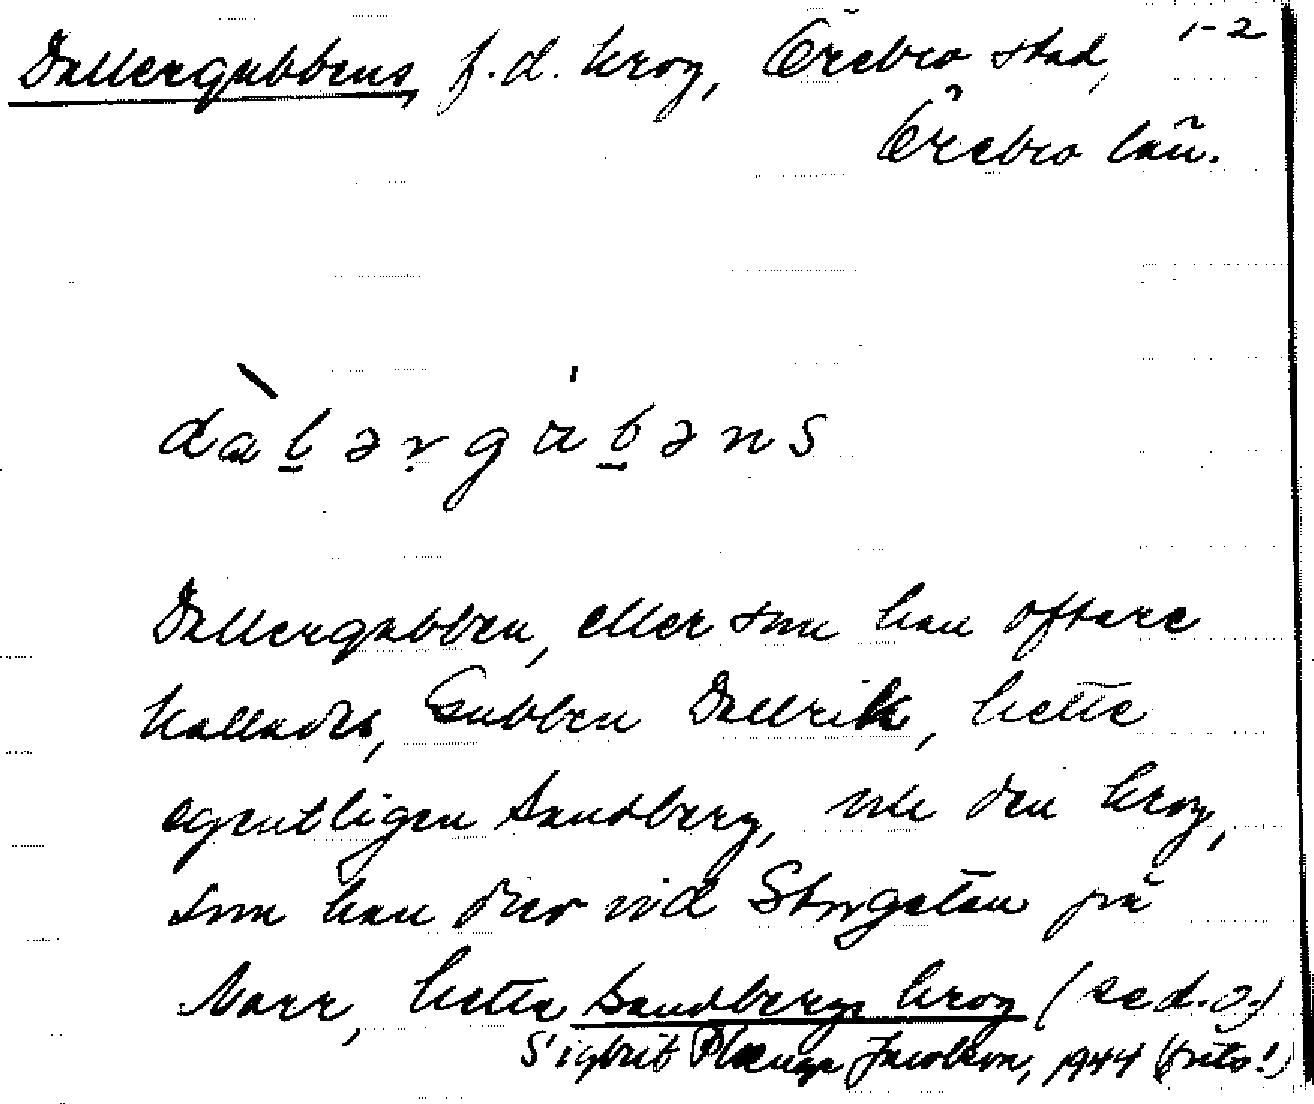 Dallergubbens, f.d. krog, Örebro stad, 1-2
Örebro län.
dalərgubəns
Dallergubben, eller som han oftare
kallades, Gubben Dallrik, hette
egentligen Sandberg, och den krog,
som han drev vid Storgatan på
Norr, hette Sandbergs krog (se d. o.)
Sigbrit Plænge Jacobson, 1944